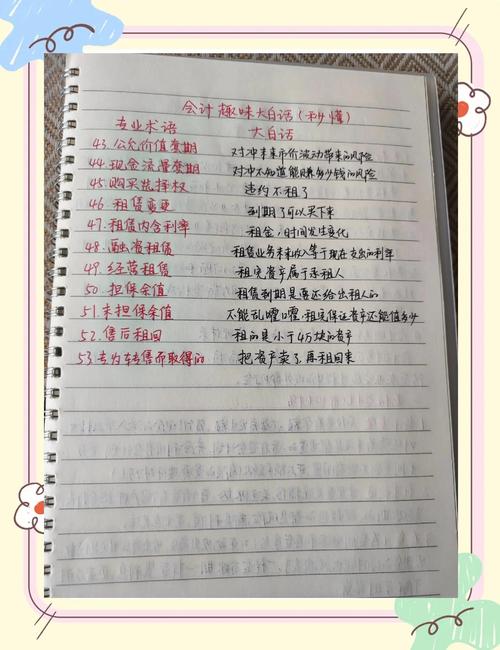 会计趣味大白话(秒懂)
专业术语 大白话
43.公允价值套期 对冲未来市价波动带来的风险
44.现金流量套期 对冲不知道能赚多少钱的风险
45.购买选择权 违约不租了
46.租赁变更 到期了可以买下来
47.租赁内含利率 租金,时间发生变化
48.融资租赁 租赁业务未来收入等于现在支出的利率
49.经营租赁 租完资产属于承租人
50.担保余值 租赁到期是要还给出租人的
51.未担保余值 不能乱嚯嚯,租完保证资产还能值多少
52.售后租回 租的是小于4万块的资产
53.专为转售而取得的 把资产卖了,再租回来